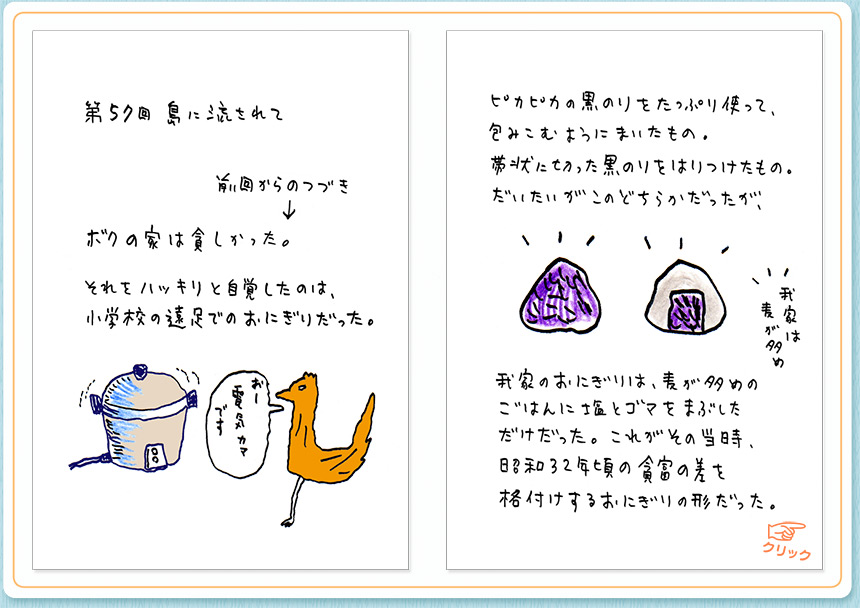 第57回 島に流されて
前回からのつづき
↓
ボクの家は貧しかった。
それをハッキリと自覚したのは、
小学校の遠足でのおにぎりだった。
おー
電気カマ
です
ピカピカの黒のりをたっぷり使って、
包みこむようにまいたもの。
帯状に切った黒のりをはりつけたもの。
だいたいがこのどちらかだったが、
我家は
麦が多め
我家のおにぎりは、麦が多めの
ごはんに塩とゴマをまぶした
だけだった。これがその当時、
昭和32年頃の貧富の差を
格付けするおにぎりの形だった。
クリック